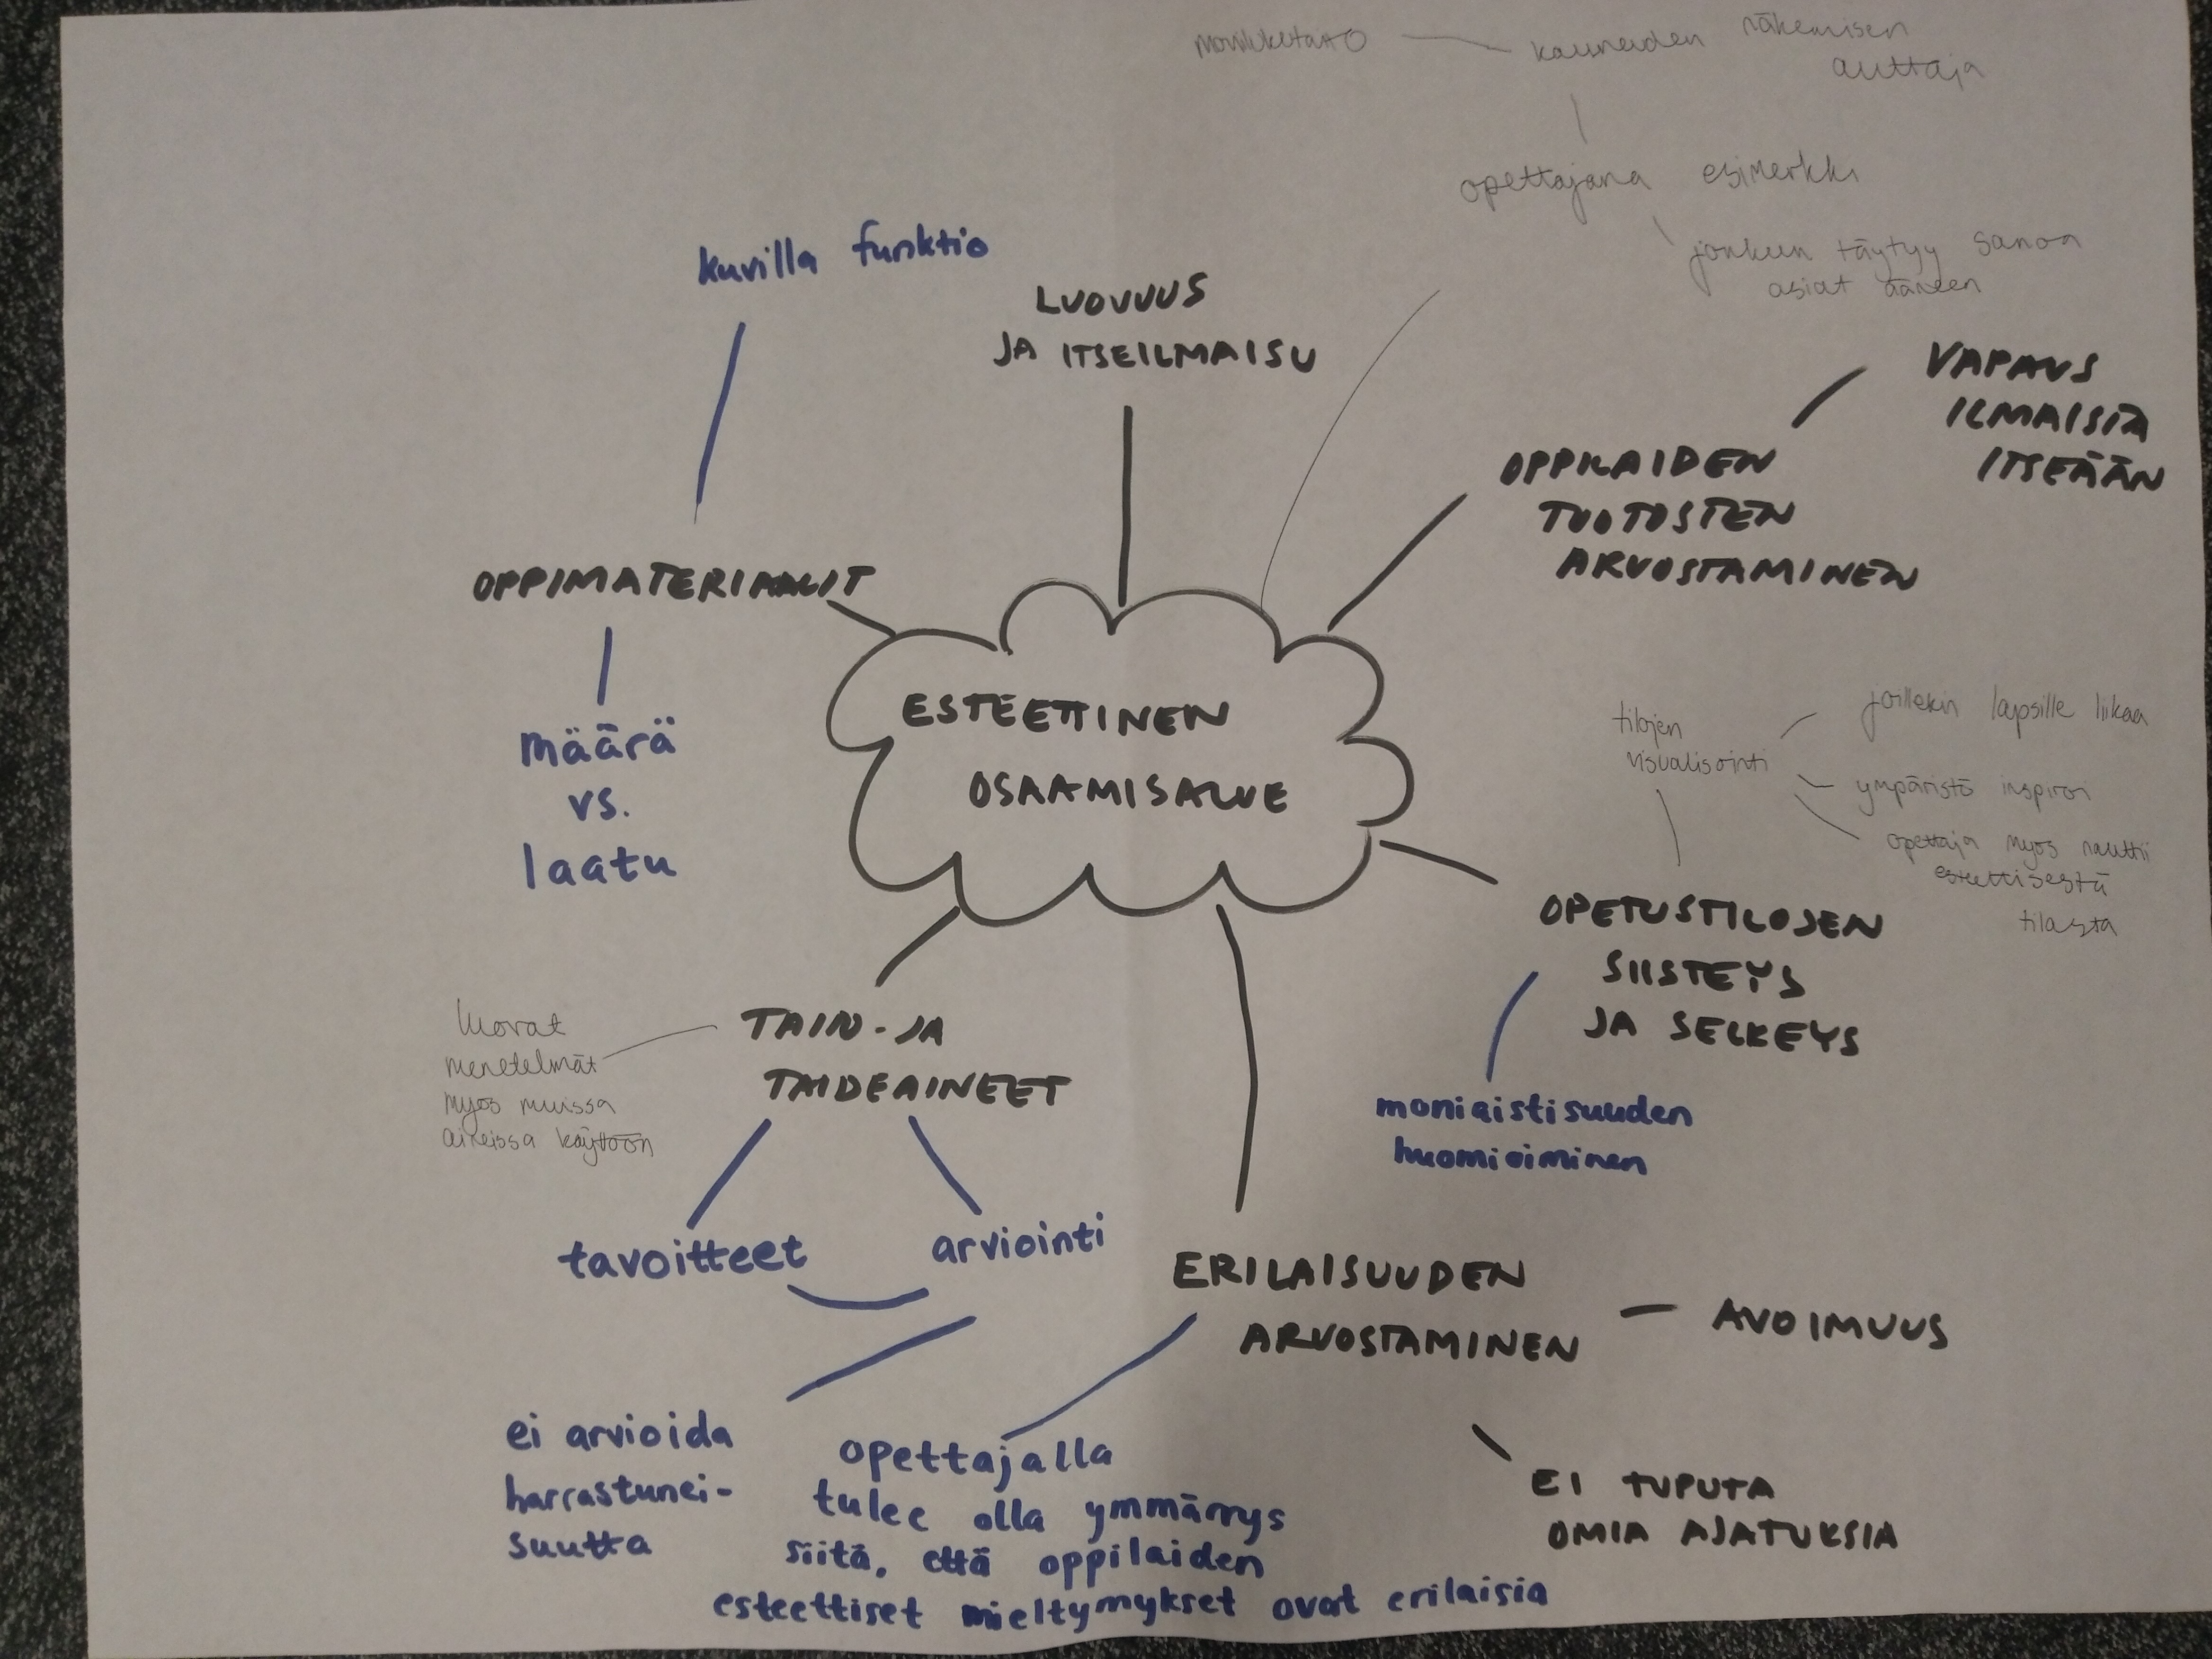 kauneuden näkemisen
auttaja
opettajana esimerkki
jonkun täytyy sanoa
asiat ääneen
kuvilla funktio
LUOVUUS
JA ITSEILMAISU
VAPAUS
ILMAISTA
ITSEÄÄN
OPPILAIDEN
TUOTOSTEN
ARVOSTAMINEN
OPPIMATERIAALIT
määrä
vs.
laatu
ESTEETTINEN
OSAAMISALUE
tilojen
visualisointi
joillekin lapsille liikaa
ympäristö inspiroi
opettaja myös nauttii
esteettisestä
tilasta
OPETUSTILOJEN
SIISTEYS
JA SELKEYS
moniaistisuuden
huomioiminen
TAITO- JA
TAIDEAINEET
luovat
menetelmät
myös muissa
aineissa käyttöön
tavoitteet
arviointi
ei arvioida
harrastunei-
suutta
ERILAISUUDEN
ARVOSTAMINEN
AVOIMUUS
EI TUPUTA
OMIA AJATUKSIA
opettajalla
tulee olla ymmärrys
siitä, että oppilaiden
esteettiset mieltymykset ovat erilaisia